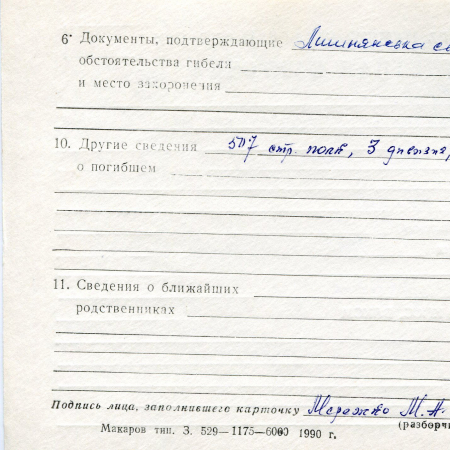 6. Документы, подтверждающие Лишнянська се
обстоятельства гибели
и место захоронения
10. Другие сведения 517 стр. полк, 3 дивизия,
о погибшем
11. Сведения о ближайших
родственниках
Подпись лица, заполнившего карточку М. А.
(разборчи
Макаров тип. З. 529—1175—6000 1990 г.